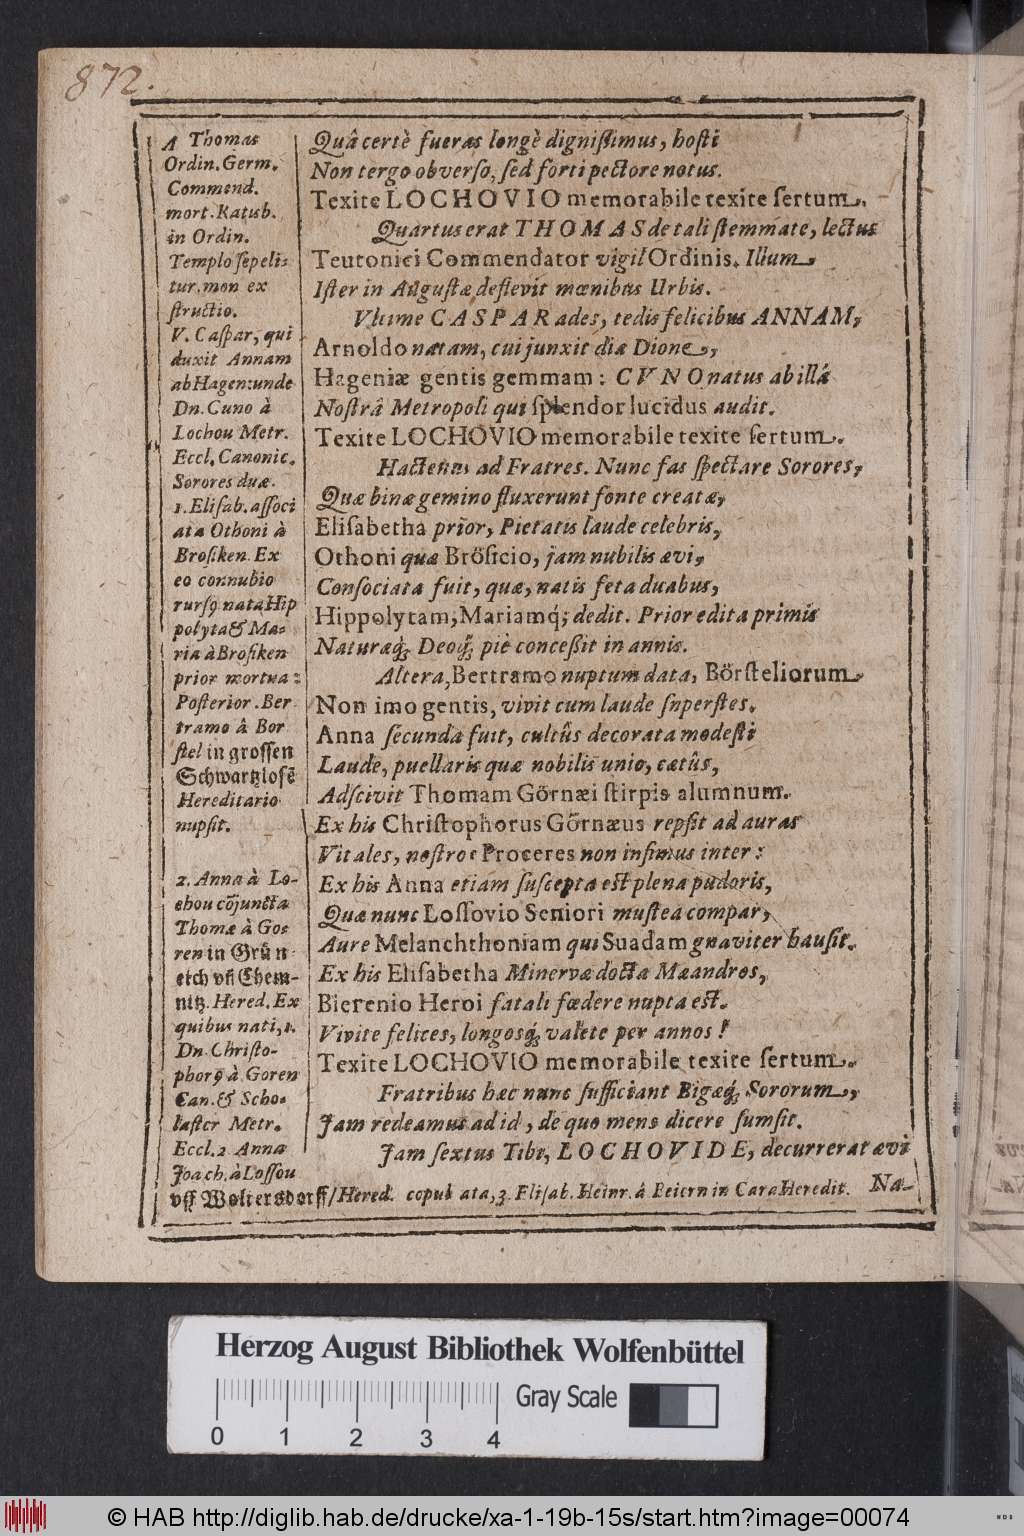 872.
4 Thomas
Ordin. Germ.
Commend.
mort. Ratisb.
in Ordin.
Templo sepeli-
tur, mon ex
structio.
V. Caspar, qui
duxit Annam
ab Hagen: unde
Dn. Cuno à
Lochou Metr.
Eccl. Canonic.
Sorores duæ.
1. Elisab. associ
ata Othoni à
Brosiken. Ex
eo connubio
rursꝰ nata Hip
polyta & Ma-
ria à Brosiken
prior mortua:
Posterior. Ber
tramo â Bor
stel in grossen
Schwartzlosẽ
Hereditario
nupsit.
2. Anna à Lo-
chou cõjuncta
Thomæ à Go-
ren in Grůn
eich vñ Chem-
nitz. Hered. Ex
quibus nati, 1.
Dn. Christo-
phorꝰ à Goren
Can. & Scho-
laster Metr.
Eccl. 2 Anna
Joach. à Lossou
vff Woltersdorff/ Hered. copulata, 3. Elisab. Heinr. â Beiern in Cara Heredit.
Quâ certè fueras longè dignissimus, hosti
Non tergo obverso, sed forti pectore notus.
Texite LOCHOVIO memorabile texite sertum.
Quartus erat THOMAS de tali stemmate, lectus
Teutonici Commendator vigil Ordinis. Illum,
Ister in Augustæ deflevit mœnibus Urbis.
Vltime CASPAR ades, tedis felicibus ANNAM,
Arnoldo natam, cui junxit dia Dione,
Hageniæ gentis gemmam: CVNO natus ab illâ
Nostrâ Metropoli qui splendor lucidus audit.
Texite LOCHOVIO memorabile texite sertum.
Hactenus ad Fratres. Nunc fas spectare Sorores,
Quæ binæ gemino fluxerunt fonte creatæ,
Elisabetha prior, Pietatis laude celebris,
Othoni quæ Brösicio, jam nubilis ævi,
Consociata fuit, quæ, natis feta duabus,
Hippolytam, Mariamq́; dedit. Prior edita primis
Naturæq́; Deoq́; piè conceßit in annis.
Altera, Bertramo nuptum data, Börsteliorum,
Non imo gentis, vivit cum laude superstes.
Anna secunda fuit, cultûs decorata modesti
Laude, puellaris quæ nobilis unio, cætûs,
Adscivit Thomam Görnæi stirpis alumnum.
Ex his Christophorus Görnæus repsit ad auras
Vitales, nostros Proceres non infimus inter:
Ex his Anna etiam suscepta est plena pudoris,
Quæ nunc Lossovio Seniori mustea compar,
Aure Melanchthoniam qui Suadam gnaviter hausit.
Ex his Elisabetha Minervæ docta Mæandros,
Bierenio Heroi fatali fœdere nupta est.
Vivite felices, longosq́; valete per annos!
Texite LOCHOVIO memorabile texite sertum.
Fratribus hæc nunc sufficiant Bigæq́; Sororum,
Jam redeamus ad id, de quo mens dicere sumsit.
Jam sextus Tibi, LOCHOVIDE, decurrerat ævi
Na-
Herzog August Bibliothek Wolfenbüttel
Gray Scale
0 1 2 3 4
© HAB http://diglib.hab.de/drucke/xa-1-19b-15s/start.htm?image=00074